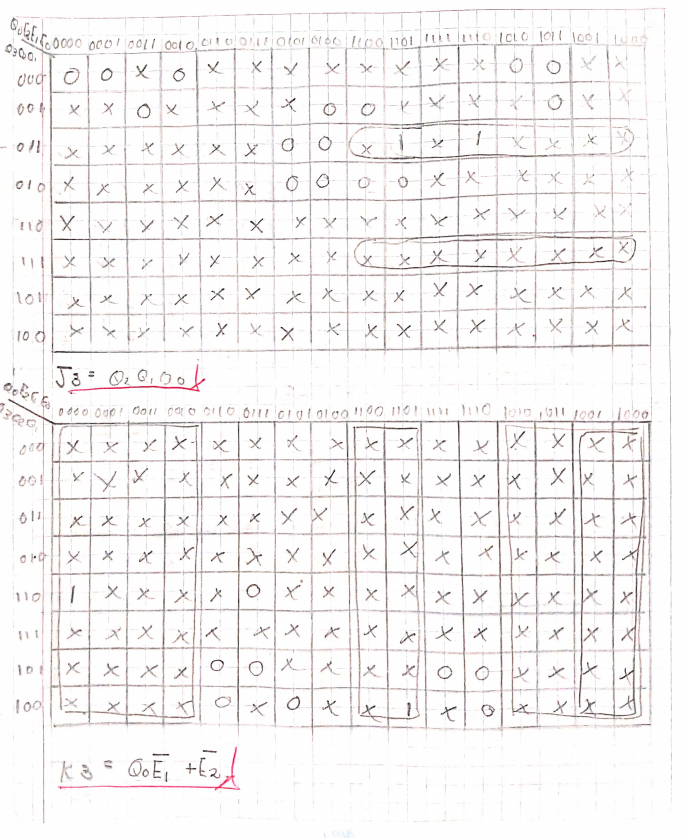 Q0E2E1E0 0000 0001 0011 0010 0110 0111 0101 0100 1100 1101 1111 1110 1010 1011 1001 1000
Q3Q2Q1
000 0 0 X 0 X X X X X X X X 0 0 X X
001 X X 0 X X X X 0 0 X X X X 0 X X
011 X X X X X X 0 0 X 1 X 1 X X X X
010 X X X X X X 0 0 0 0 X X X X X X
110 X X X X X X X X X X X X X X X X
111 X X X X X X X X X X X X X X X X
101 X X X X X X X X X X X X X X X X
100 X X X X X X X X X X X X X X X X
J3 = Q2 Q1 Q0
Q0E2E1E0 0000 0001 0011 0010 0110 0111 0101 0100 1100 1101 1111 1110 1010 1011 1001 1000
Q3Q2Q1
000 X X X X X X X X X X X X X X X X
001 X X X X X X X X X X X X X X X X
011 X X X X X X X X X X X X X X X X
010 X X X X X X X X X X X X X X X X
110 1 X X X X 0 X X X X X X X X X X
111 X X X X X X X X X X X X X X X X
101 X X X X 0 0 X X X X 0 0 X X X X
100 X X X X 0 X 0 X X 1 X 0 X X X X
K3 = Q0E̅1 + E̅2